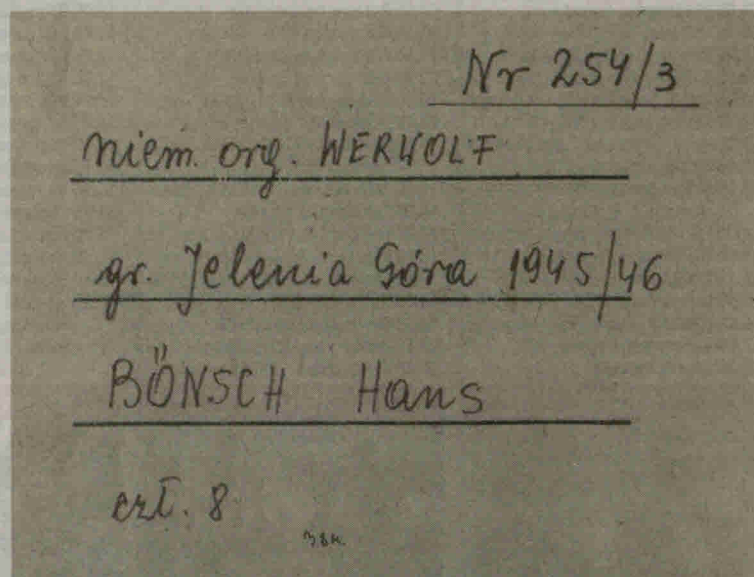 Nr 254/3
niem. org. WERWOLF
gr. Jelenia Góra 1945/46
BÖNSCH Hans
czł. 8